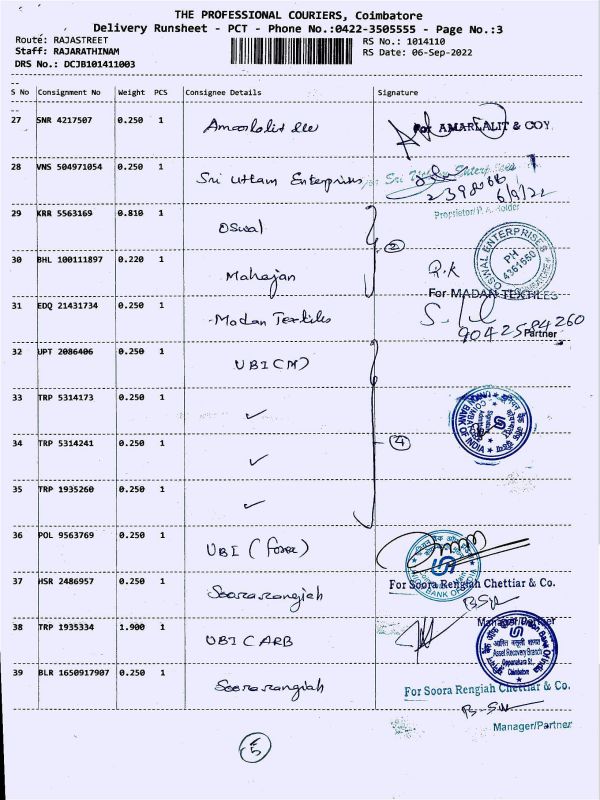 THE PROFESSIONAL COURIERS, Coimbatore
Delivery Runsheet - PCT - Phone No.:0422-3505555 - Page No.:3
Route: RAJASTREET
RS No.: 1014110
Staff: RAJARATHINAM
RS Date: 06-Sep-2022
DRS No.: DCJB101411003
S No Consignment No Weight PCS Consignee Details Signature
27 SNR 4217507 0.250 1 For AMARLALIT & COY
28 VNS 504971054 0.250 1 Sri Uttam Enterprises
6/9/22
Proprietor/P.A. Holder
29 KRR 5563169 0.810 1 Oswal
OSWAL ENTERPRISES
PH
4361550
30 BHL 100111897 0.220 1 Mahajan R.K
For MADAN TEXTILES
31 EDQ 21431734 0.250 1 Madan Textiles
9042584260
Partner
32 UPT 2086406 0.250 1 UBI (M)
33 TRP 5314173 0.250 1 ✓
UNION BANK OF INDIA
34 TRP 5314241 0.250 1 ✓ 4
35 TRP 1935260 0.250 1 ✓
36 POL 9563769 0.250 1 UBI (Forex)
37 HSR 2486957 0.250 1 Soorarangiah
For Soora Rengiah Chettiar & Co.
Manager/Partner
38 TRP 1935334 1.900 1 UBI CARB
Union Bank Of India
Asset Recovery Branch
Oppanakara St.,
Coimbatore
39 BLR 1650917907 0.250 1 Soorarangiah
For Soora Rengiah Chettiar & Co.
Manager/Partner
5